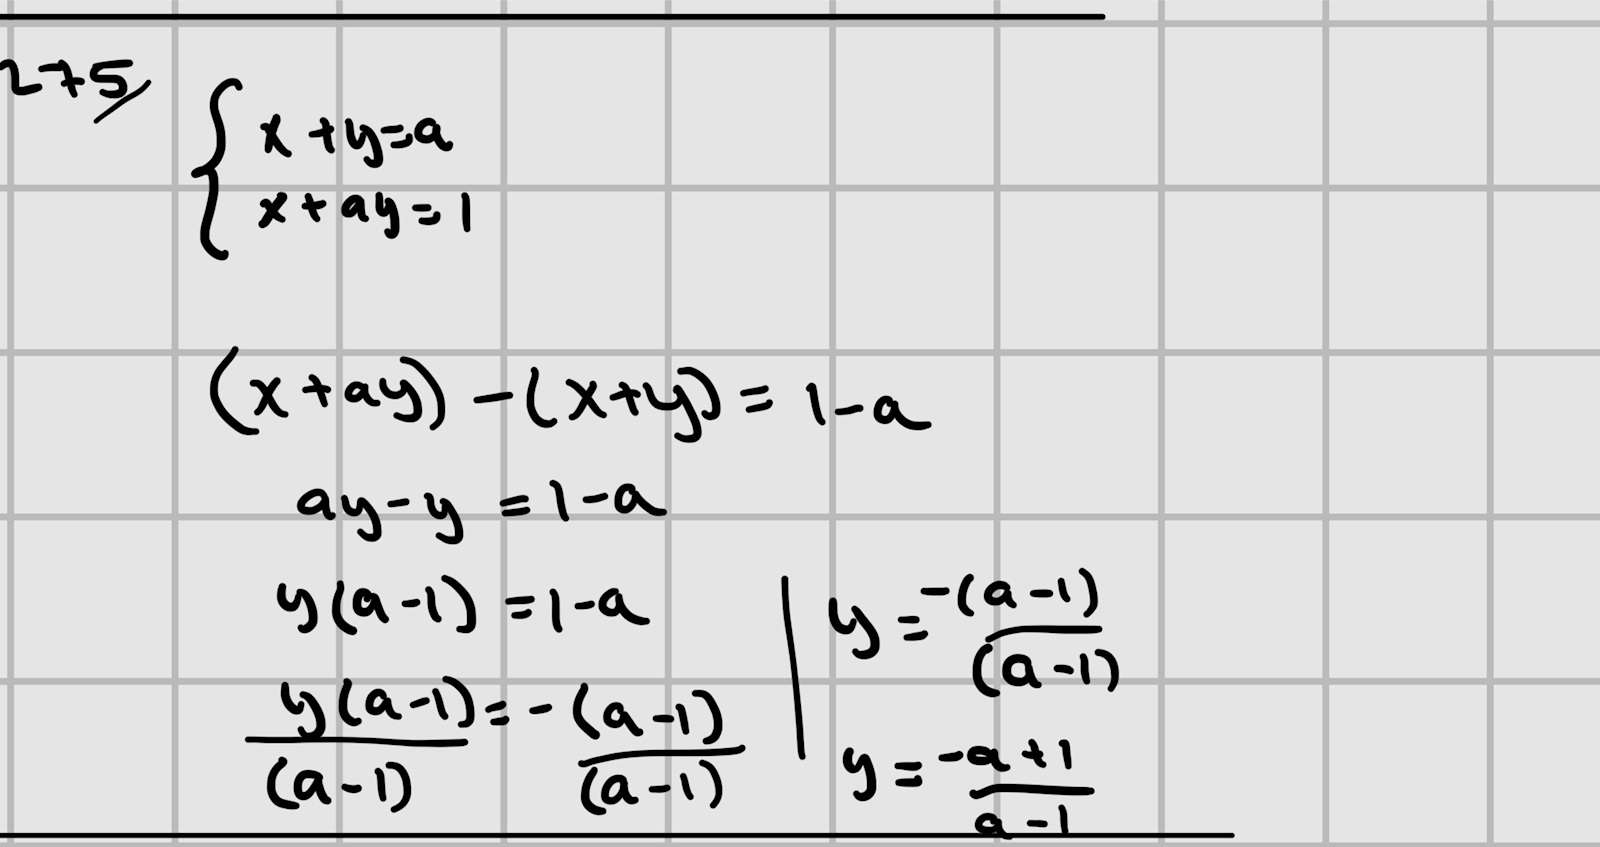 275/
{ x + y = a
x + ay = 1
(x + ay) - (x + y) = 1 - a
ay - y = 1 - a
y(a - 1) = 1 - a
y(a - 1)/(a - 1) = - (a - 1)/(a - 1)
y = -(a - 1)/(a - 1)
y = -a + 1/a - 1